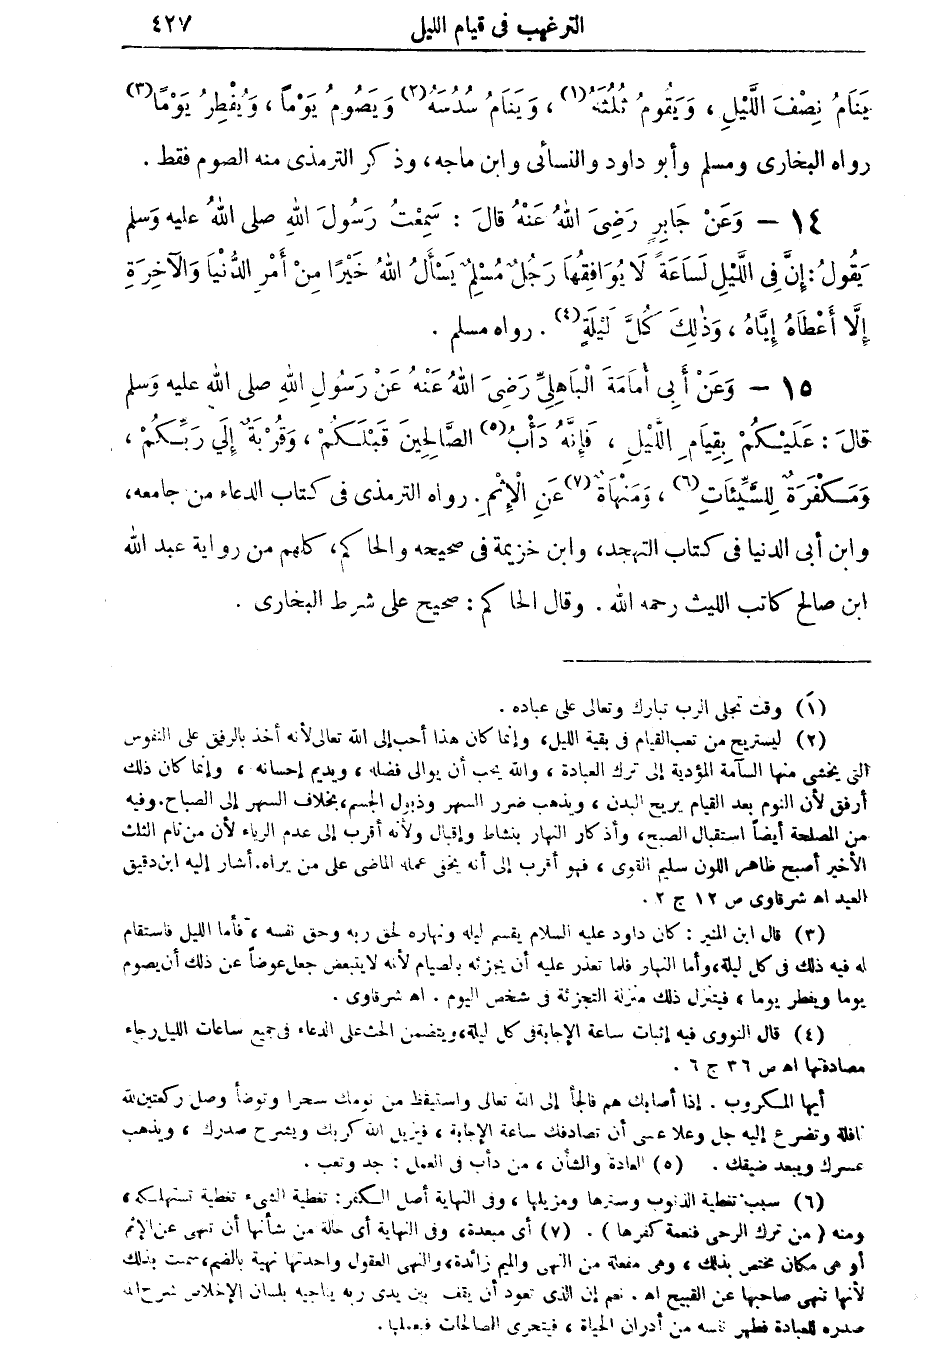 الترغيب فى قيام الليل ٤٢٧
يَنَامُ نِصْفَ اللَّيْلِ ، وَيَقُومُ ثُلُثَهُ(١) ، وَيَنَامُ سُدُسَهُ(٢) وَيَصُومُ يَوْماً ، وَيُفْطِرُ يَوْمًا(٣)
رواه البخارى ومسلم وأبو داود والنسائى وابن ماجه، وذكر الترمذى منه الصوم فقط .
١٤ – وَعَنْ جَابِرٍ رَضِىَ اللهُ عَنْهُ قالَ : سَمِعْتُ رَسُولَ اللهِ صلى اللهُ عليه وَسلم
يَقُولُ: إِنَّ فِى اللَّيْلِ لَسَاعَةً لَا يُوَافِقُهَا رَجُلٌ مُسْلِمٌ يَسْأَلُ اللهَ خَيْرًا مِنْ أَمْرِ الدُّنْيَا وَالْآخِرَةِ
إِلَّا أَعْطَاهُ إِيَّاهُ ، وَذٰلِكَ كُلَّ لَيْلَةٍ(٤) . رواه مسلم .
١٥ – وَعَنْ أَبِى أُمَامَةَ الْبَاهِلِيِّ رَضِىَ اللهُ عَنْهُ عَنْ رَسُولِ اللهِ صلى اللهِ عليه وَسلم
قالَ : عَلَيْكُمْ بِقِيَامِ اللَّيْلِ ، فَإِنَّهُ دَأْبُ(٥) الصَّالِحِينَ قَبْلَكُمْ ، وَقُرْبَةٌ إِلَي رَبِّكُمْ ،
وَمَكْفَرَةٌ لِلسَّيِّئَاتِ(٦) ، وَمَنْهَاةٌ(٧) عَنِ الْإِثْمِ . رواه الترمذى فى كتاب الدعاء من جامعه،
وابن أبى الدنيا فى كتاب التهجد، وابن خزيمة فى صحيحه والحاكم، كلهم من رواية عبد الله
ابن صالح كاتب الليث رحمه الله . وقال الحاكم : صحيح على شرط البخارى .
(١) وقت تجلى الرب تبارك وتعالى على عباده .
(٢) ليستريح من تعب القيام فى بقية الليل، وإنما كان هذا أحب إلى الله تعالى لأنه أخذ بالرفق على النفوس
التى يخشى منها السآمة المؤدية إلى ترك العبادة ، والله يحب أن يوالى فضله ، ويديم إحسانه ، وإنما كان ذلك
أرفق لأن النوم بعد القيام يريح البدن ، ويذهب ضرر السهر وذبول الجسم، بخلاف السهر إلى الصباح. وفيه
من المصلحة أيضاً استقبال الصبح، وأذكار النهار بنشاط وإقبال ولأنه أقرب إلى عدم الرياء لأن من نام الثلث
الأخير أصبح ظاهر اللون سليم القوى ، فهو أقرب إلى أنه يخفى عمله الماضى على من يراه. أشار إليه ابن دقيق
العيد اه شرقاوى ص ١٢ ج ٢ .
(٣) قال ابن المنير : كان داود عليه السلام يقسم ليله ونهاره لحق ربه وحق نفسه ، فأما الليل فاستقام
له فيه ذلك فى كل ليلة، وأما النهار فلما تعذر عليه أن يجزئه بالصيام لأنه لا يتبعض جعل عوضاً عن ذلك أن يصوم
يوما ويفطر يوما ، فيتنزل ذلك منزلة التجزئة فى شخص اليوم . اه شرقاوى .
(٤) قال النووى فيه إثبات ساعة الإجابة فى كل ليلة، ويتضمن الحث على الدعاء فى جميع ساعات الليل رجاء
مصادفتها اه ص ٣٦ ج ٦ .
أيها المكروب . إذا أصابك هم فالجأ إلى الله تعالى واستيقظ من نومك سحرا وتوضأ وصل ركعتين لله
نافلة وتضرع إليه جل وعلا عسى أن تصادفك ساعة الإجابة ، فيزيل الله كربك ويشرح صدرك ، ويذهب
عسرك ويبعد ضيقك . (٥) العادة والشأن ، من دأب فى العمل : جد وتعب .
(٦) سبب تغطية الذنوب وسترها ومزيلها ، وفى النهاية أصل الكفر: تغطية الشىء تغطية تستهلكه ،
ومنه ( من ترك الرحى فنعمة كفرها ) . (٧) أى مبعدة، وفى النهاية أى حالة من شأنها أن تنهى عن الإثم
أو هى مكان مختص بذلك ، وهى مفعلة من النهى والميم زائدة، والنهى العقول واحدتها نهية بالضم، سميت بذلك
لأنها تنهى صاحبها عن القبيح اه . نعم إن الذى تعود أن يقف بين يدى ربه يناجيه بلسان الإخلاص شرح الله
صدره للعبادة فطهر نفسه من أدران الحياة ، فيتحرى الصالحات فيعملها .